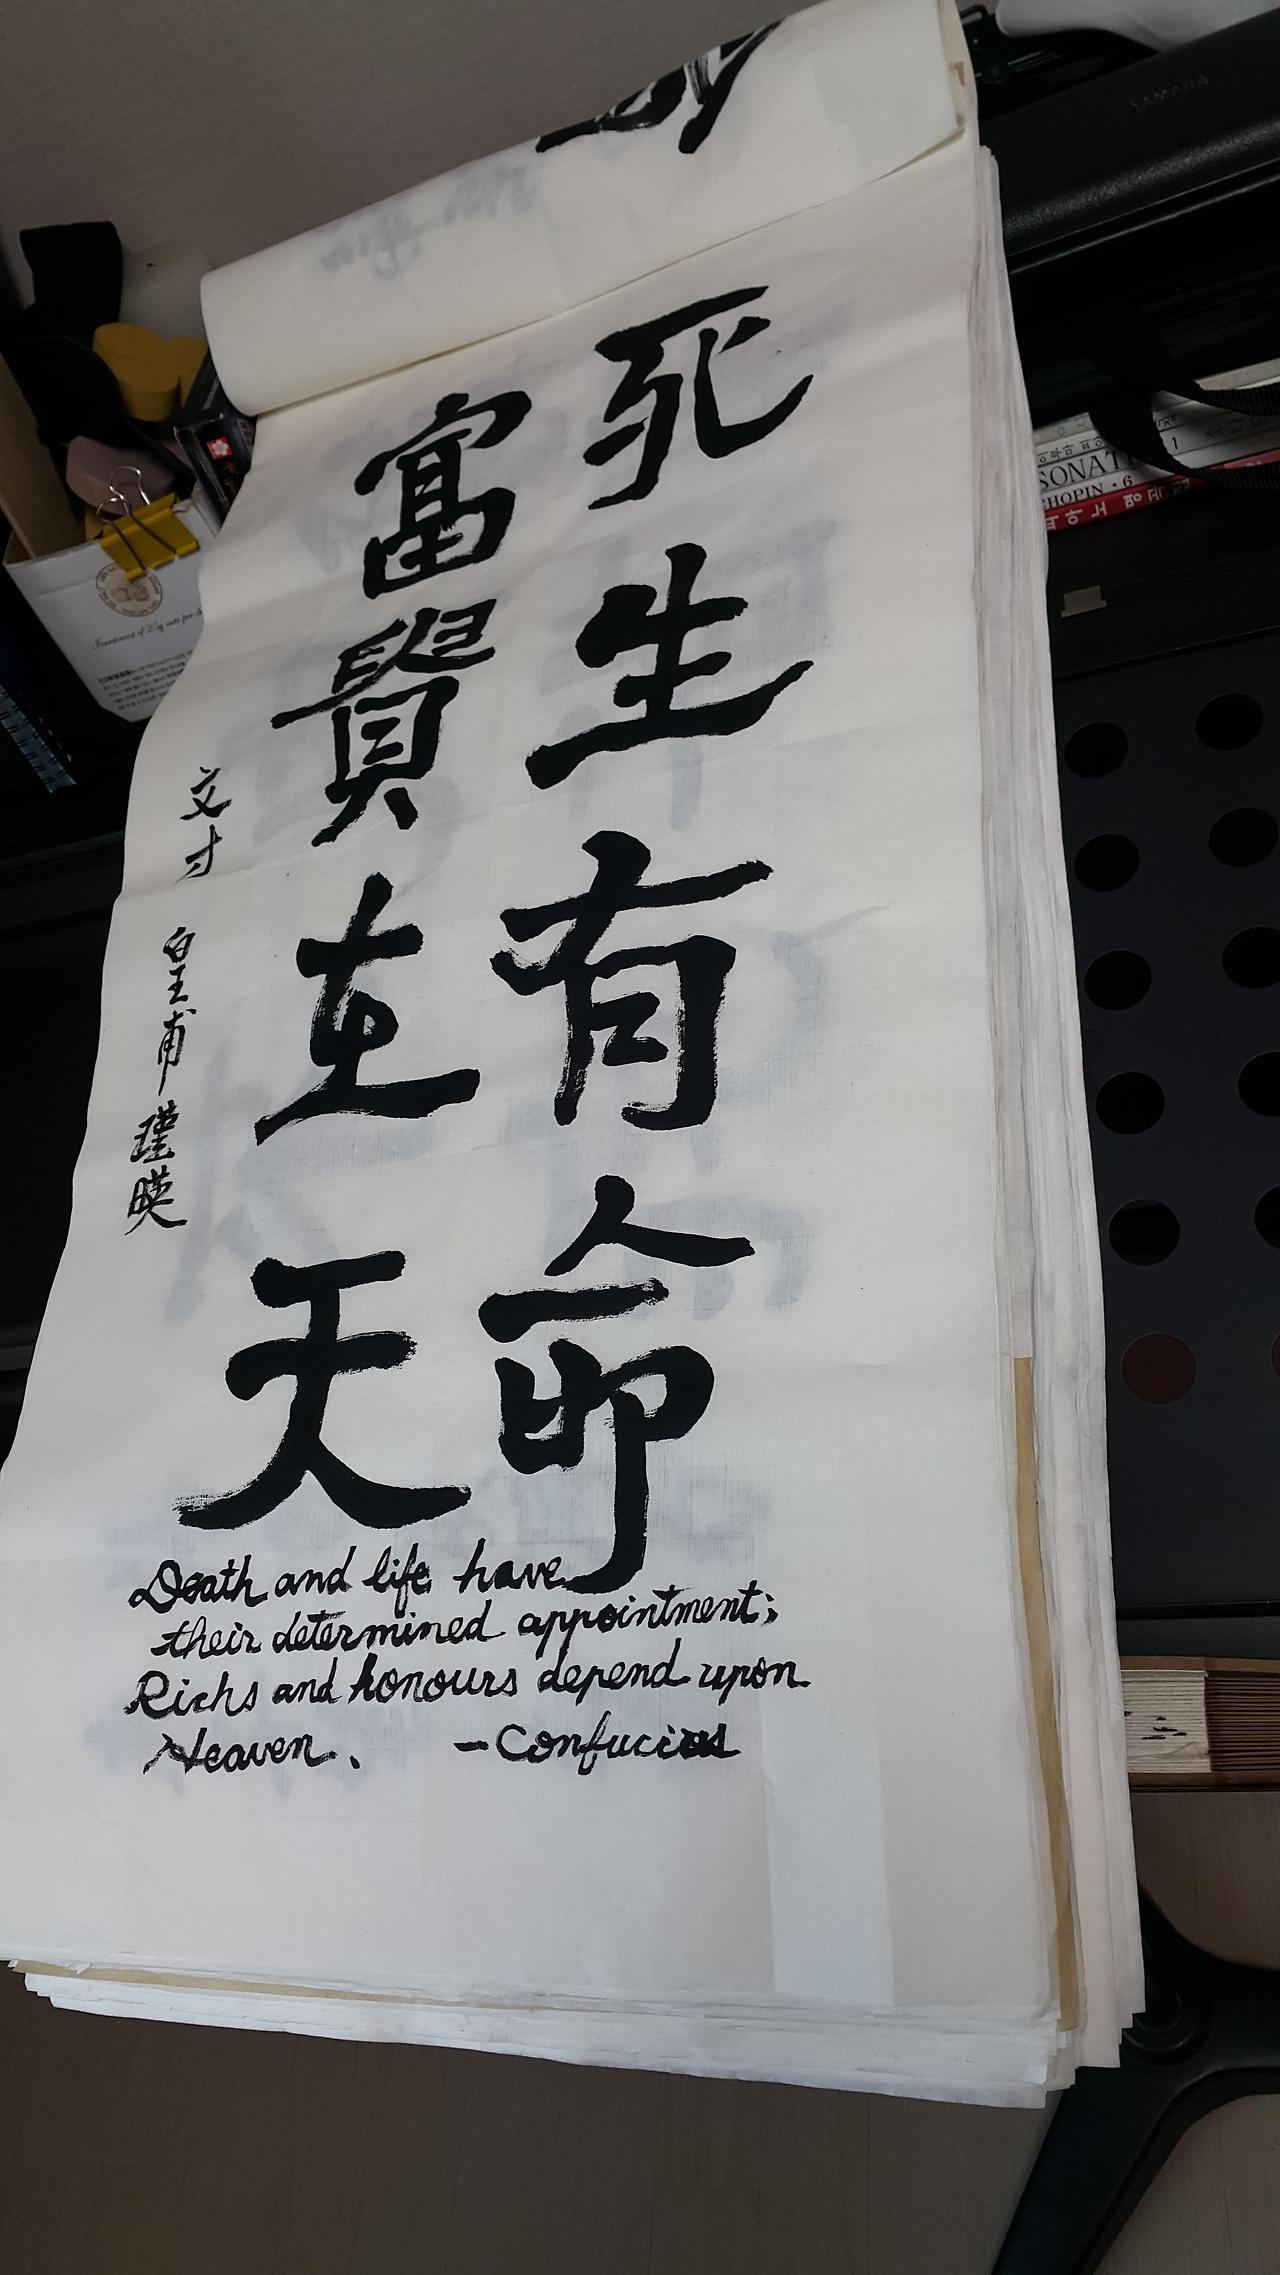 死生有命
富貴在天
文才 皇甫瑾暎
Death and life have
their determined appointment;
Richs and honours depend upon
Heaven. -Confucius
YAMAHA
SONATI
CHOPIN · 6
피아노 명곡